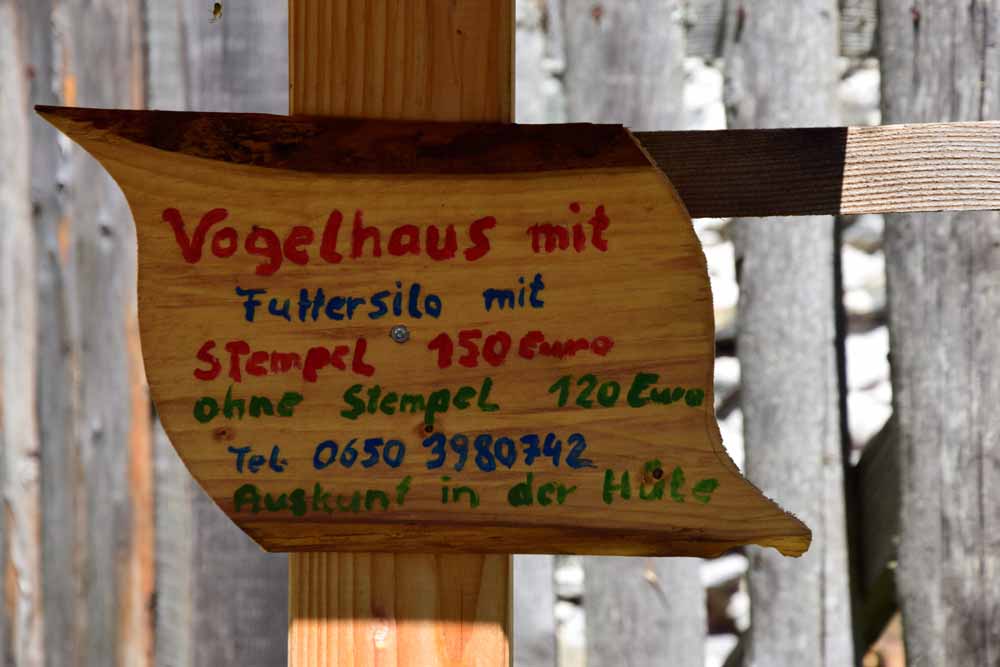 Vogelhaus mit
Futtersilo mit
Stempel 150 Euro
ohne Stempel 120 Euro
Tel. 0650 3980742
Auskunft in der Hüte